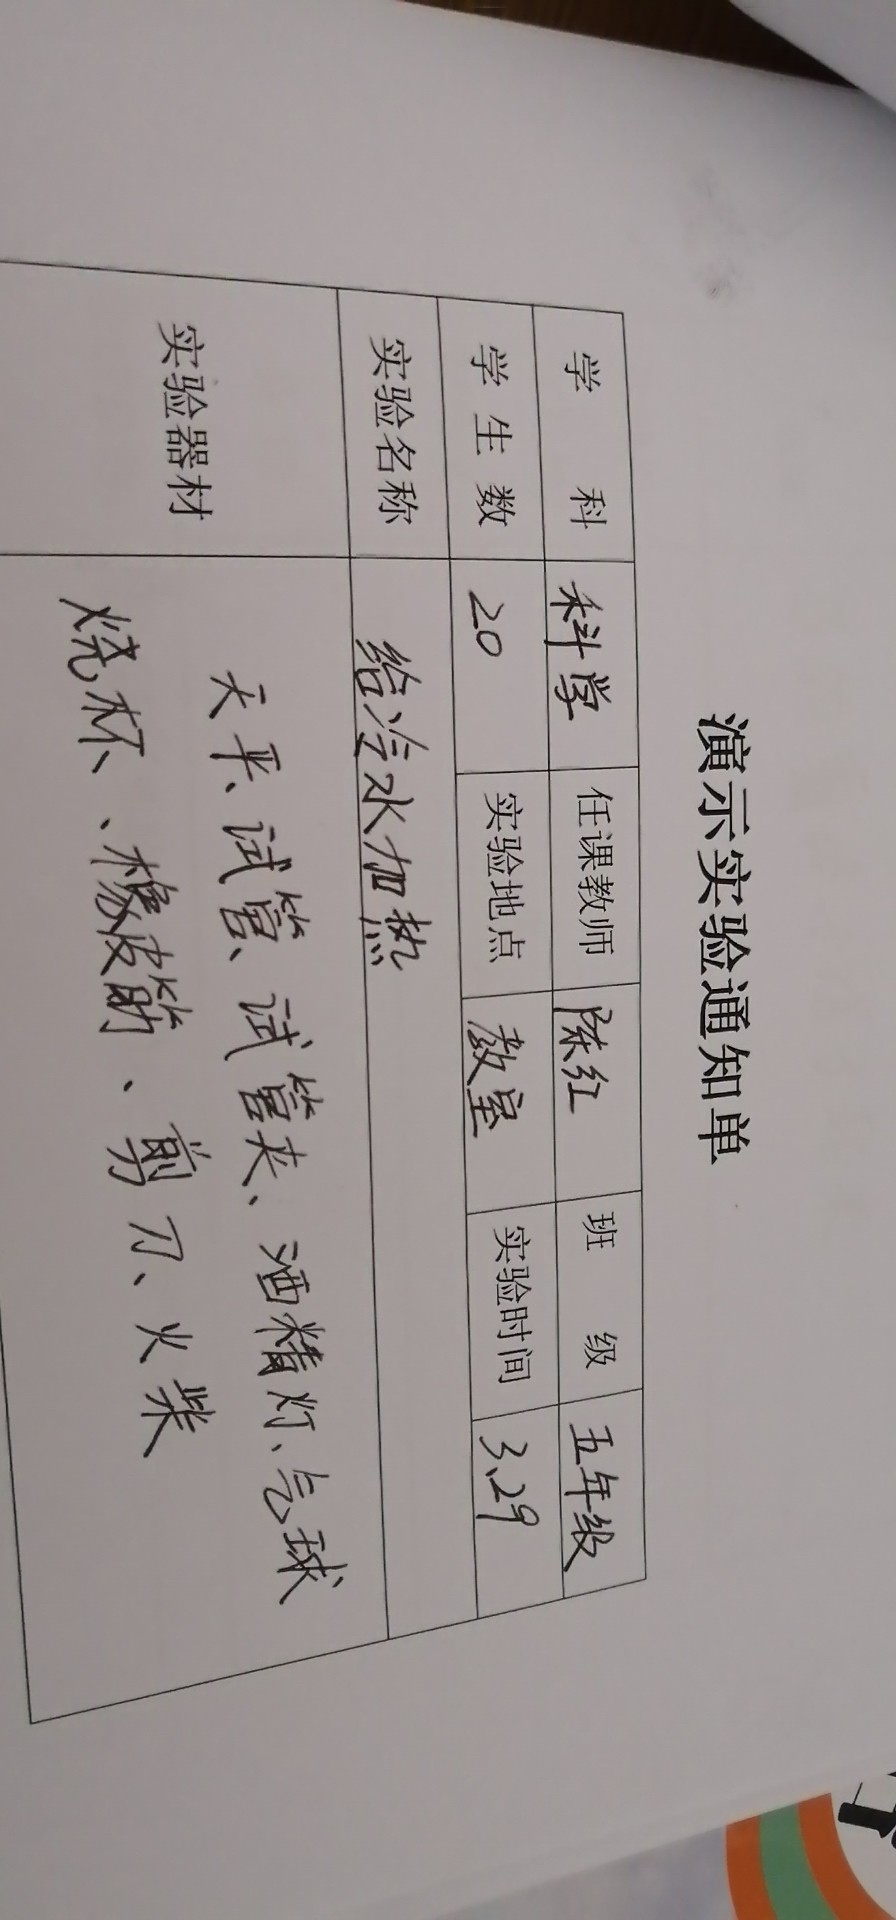 演示实验通知单
学 科 科学 任课教师 陈红 班 级 五年级
学生数 20 实验地点 教室 实验时间 3、29
实验名称 给冷水加热
实验器材 天平、试管、试管夹、酒精灯、气球
烧杯、、橡皮筋、剪刀、火柴